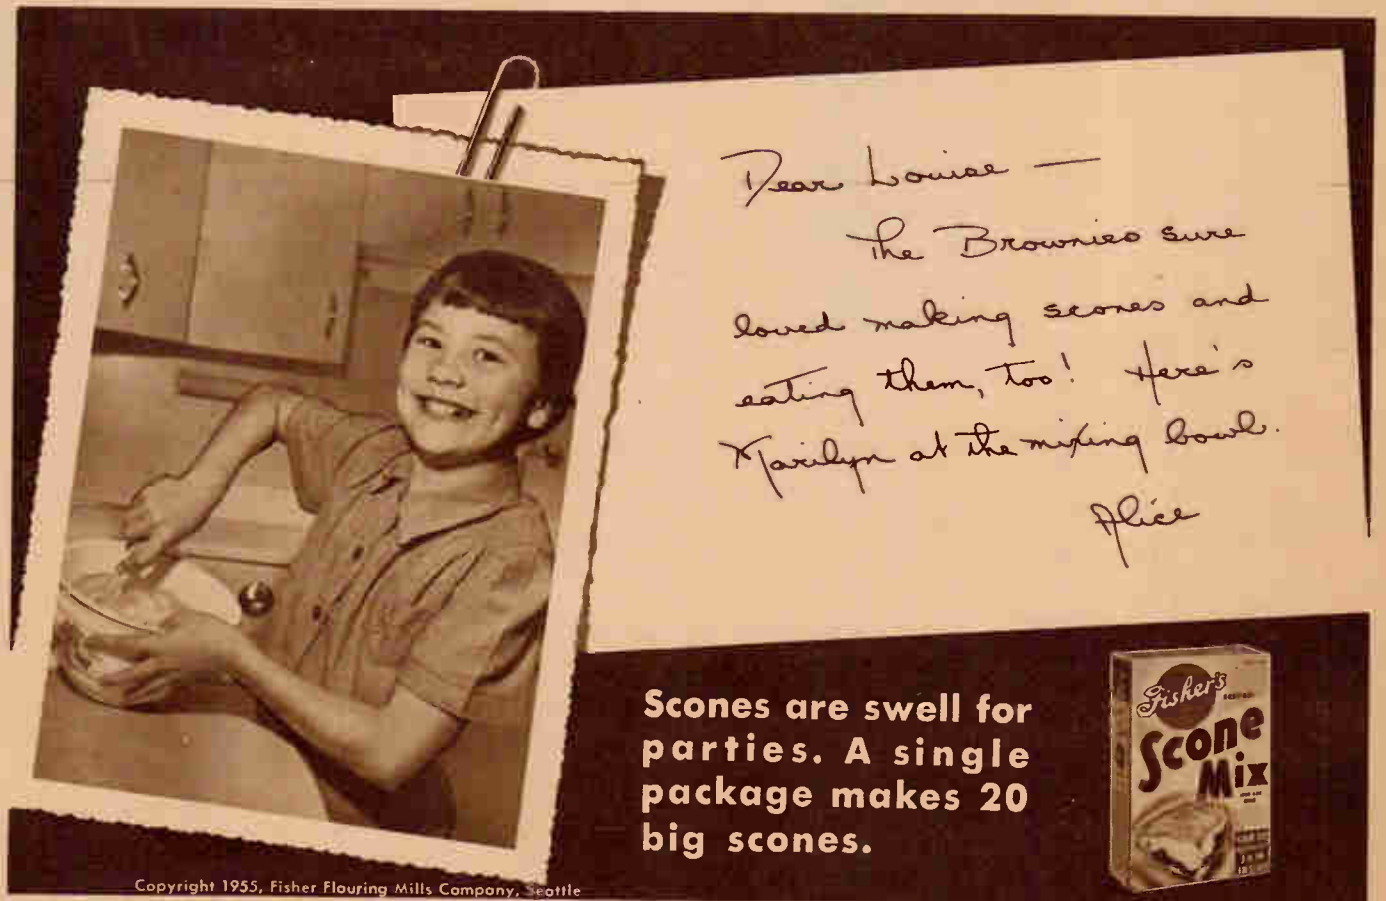 Dear Louise —
The Brownies sure
loved making scones and
eating them, too! Here's
Marilyn at the mixing bowl.
Alice
Scones are swell for
parties. A single
package makes 20
big scones.
Fisher's
Scone
Mix
Copyright 1955, Fisher Flouring Mills Company, Seattle